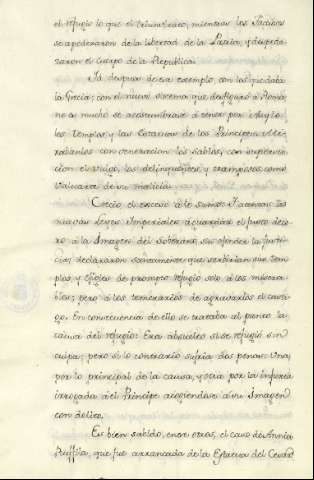 el refugio lo que el triumvirato, mientras los Partidos
se apoderaron de la libertad de la Patria, y despeda-
zaron el cuerpo de la Republica.
Ya despues de ese exemplo, con las que daba
la Grecia; con el nuevo sistema que desfiguró a Roma,
no a mucho se acostumbrase á tener por Asylo
los Templos, y las Estatuas de los Principes. Mi-
rabanlos con veneracion los sabios, con supersti-
cion el vulgo, los delinquentes, y tramposos como
valuarte de su malicia.
Creció el exceso á lo sumo.
nuevas Leyes Imperiales á guardar el justo deco-
ro á la Imagen del Soberano sin ofender la justi-
cia, declararon santamente que servirian sus tem-
plos, y efigies de prompto refugio solo á los misera-
bles; pero á los temerarios de agravarles el casti-
go. En consecuencia de ello se trataba al punto la
causa del refugio: Era absuelto si se refugió sin
culpa; pero si lo contrario sufria dos penas: Una,
por lo principal de la causa, y otra por la injuria
irrogada á el Principe acogiendose á su Imagen
con delito.
Es bien sabido, entre otros, el caso de Annia
Ruffila, que fue arrancada de la Estatua del Cesar